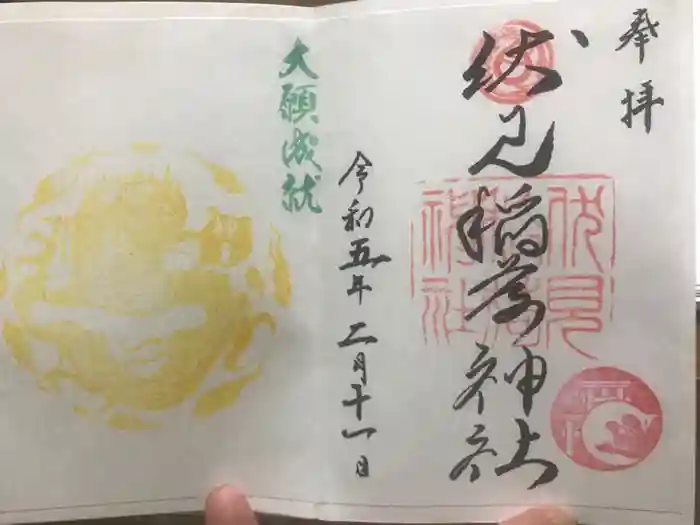 奉拝
伏見稲荷神社
伏見稲荷神社
令和五年二月十一日
大願成就